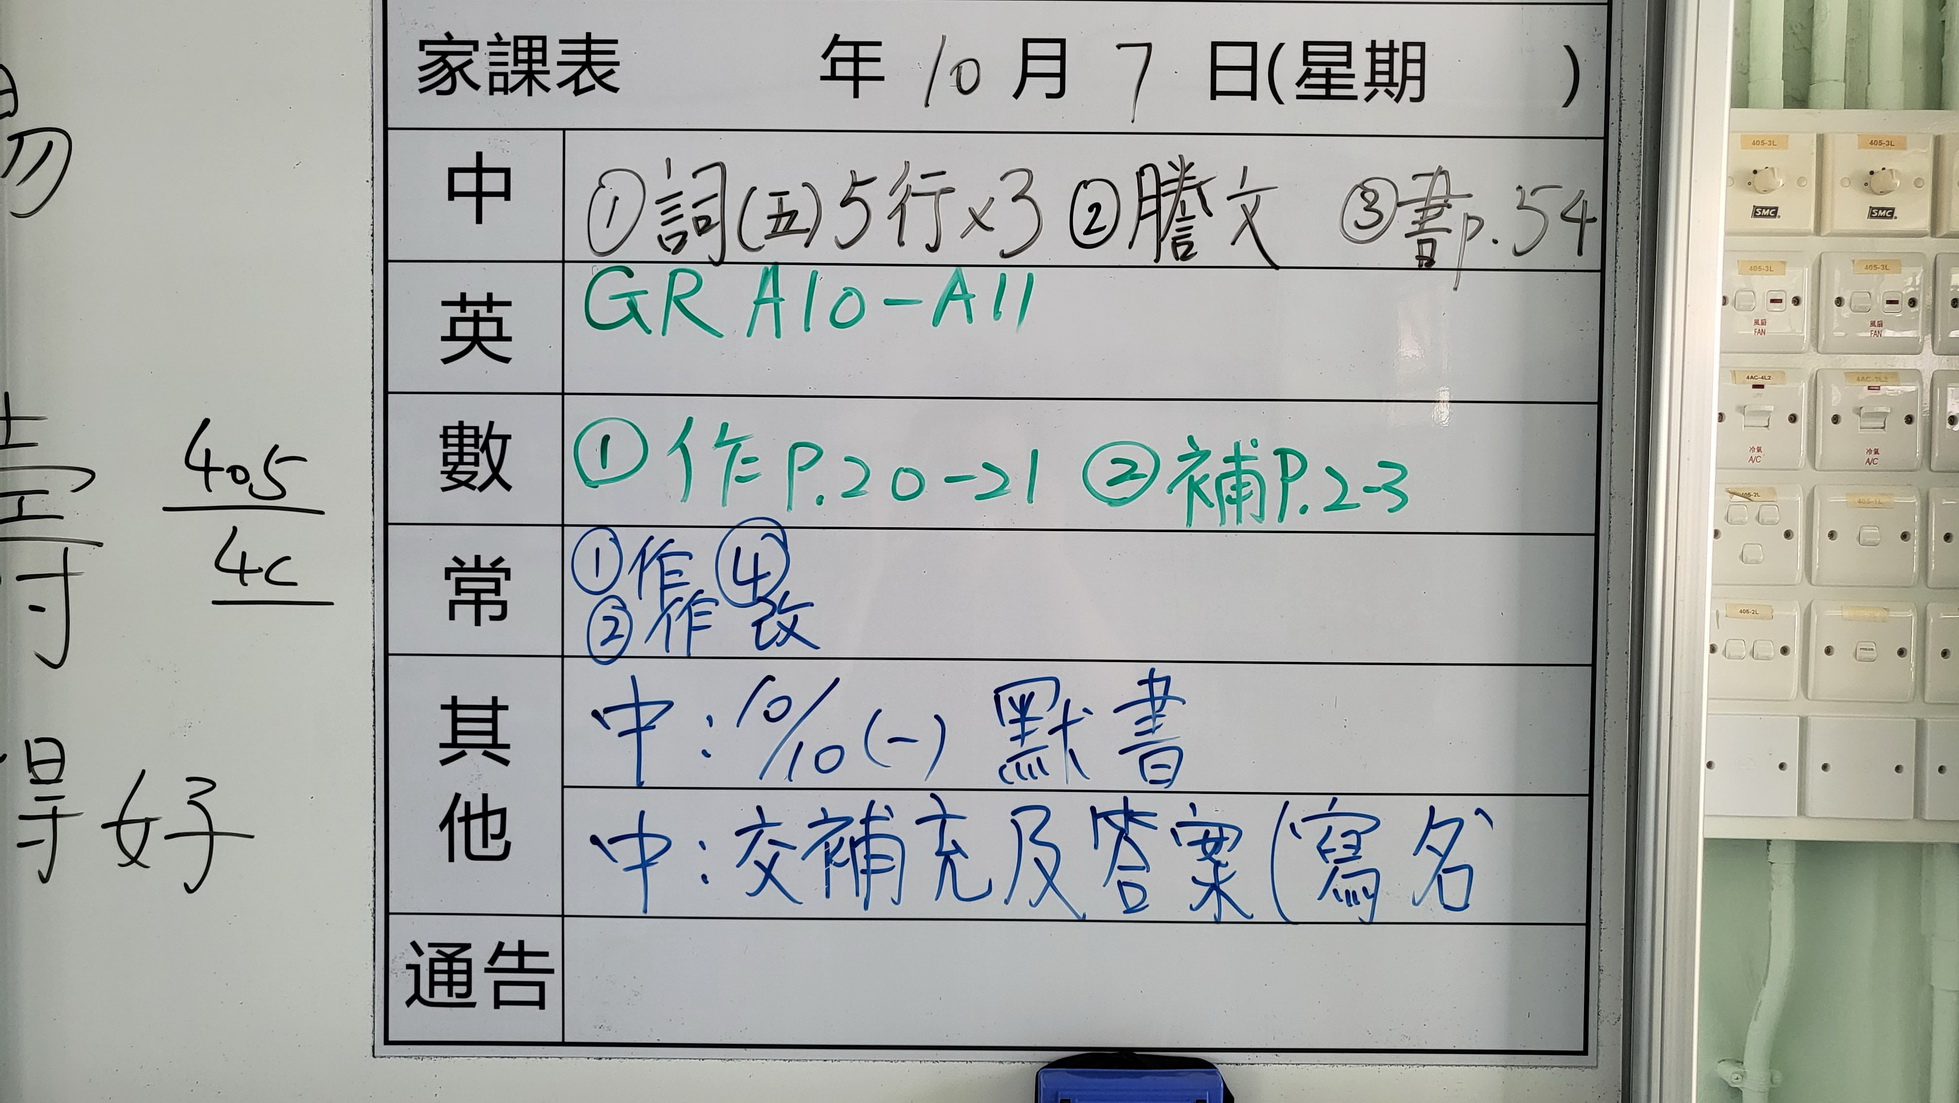 家課表 年 10 月 7 日(星期 )
中 ①詞(五)5行x3 ②謄文 ③書p.54
英 GR A10-A11
數 ①作P.20-21 ②補P.2-3
常 ①作④
②作改
其他 中:10/10(一)默書
中:交補充及答案(寫名)
通告
405
4C
得好
405-3L 405-3L
SMC SMC
405-3L 405-3L
風扇 風扇
FAN FAN
4AC-4L2
冷氣 冷氣
A/C A/C
405-2L